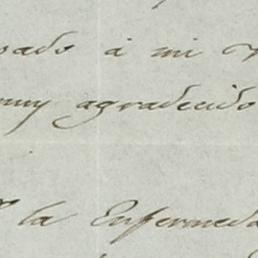 sado á mi
muy agradecido
la Enfermeda